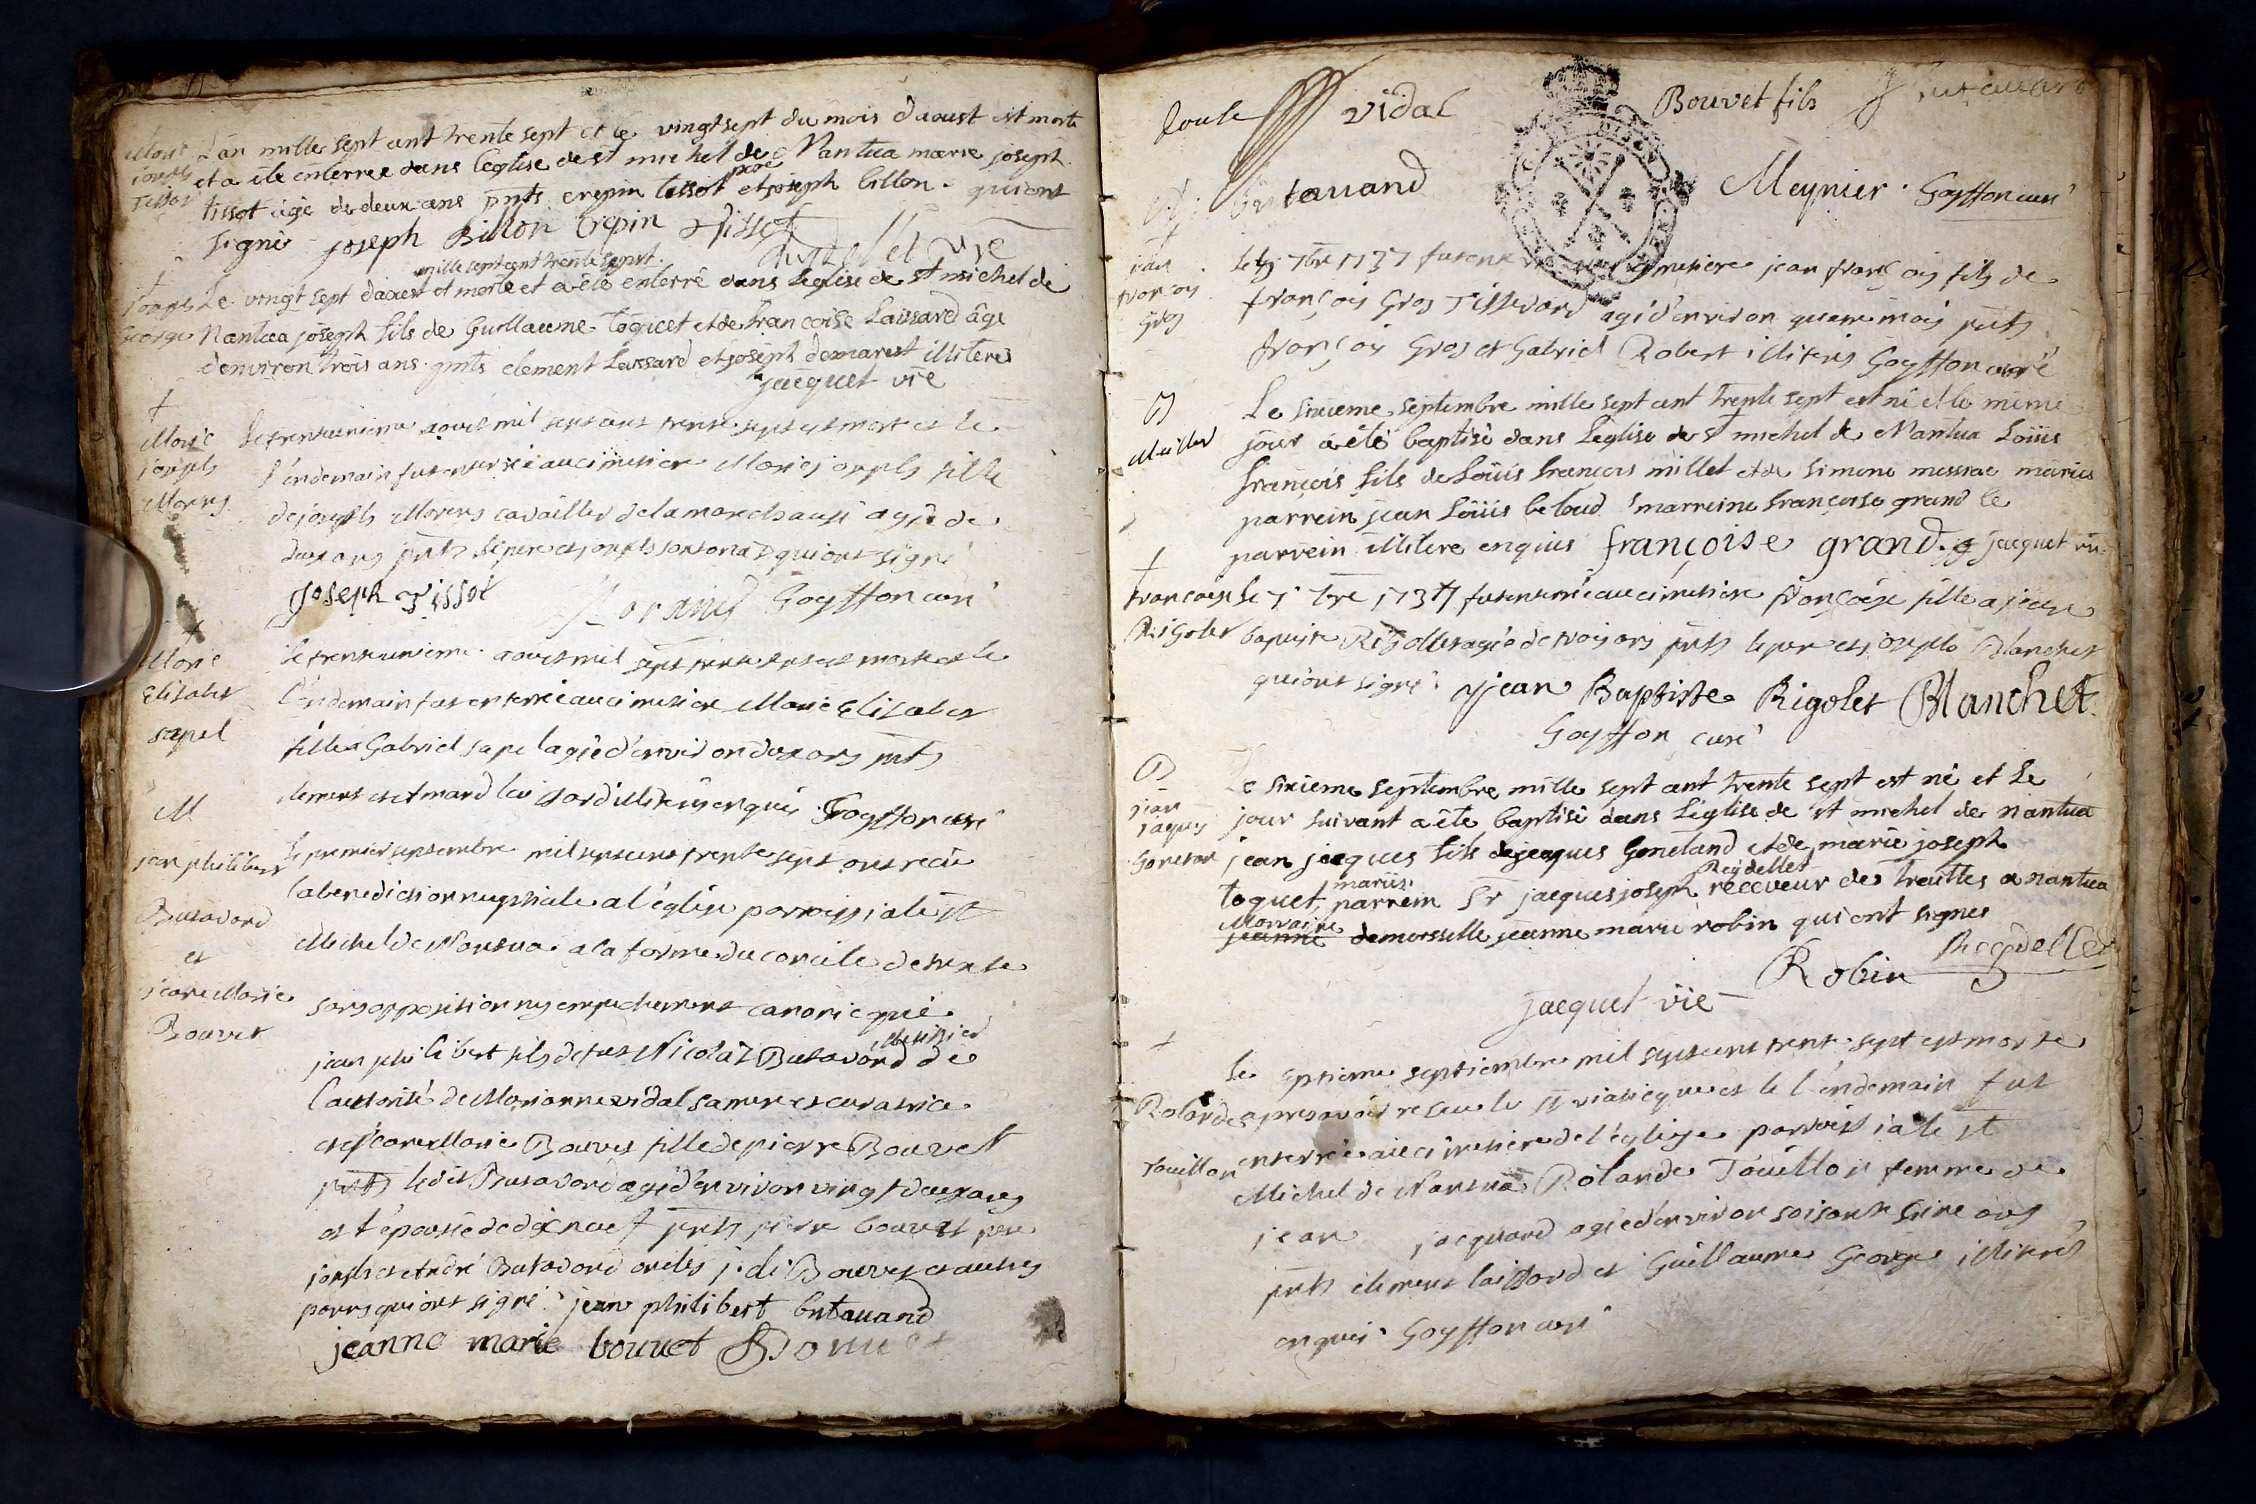 Lan mille sept cent trente sept et le vingt sept du mois daoust est morte
et a été enterrée dans l'église de st michel de Nantua marie joseph
tissot âgé de deux ans pnts crepin tissot pere et joseph billon qui ont
signé joseph Billon Crepin tissot
jacquet vie
mille sept cent trente sept.
Le vingt sept daoust et morte et a été enterré dans l'église de st michel de
Nantua joseph fils de Guillaume toquet et de francoise Laissard âgé
denviron trois ans pnts clement Laissard et joseph demarest illiteres
jacquet vie
Marie
joseph
Morens
Le trenteunieme aoust mil sept cent trente sept est morte et le
l'endemain fut enterrée au cimetiere Marie joseph fille
de joseph Morens cavailler de la marechaussé agée de
deux ans pnts le pere et joseph qui ont signé
joseph Tissot Goyffon curé
Marie
Elisabet
sapel
le trenteunieme aoust mil sept trente sept est morte et le
l'endemain fut enterrée au cimetiere Marie Elisabet
fille a Gabriel sapel agée d'environ deux ans pnts
clement laissard illiterés enquis Goyffon curé
M
jean philibert
Butavand
et
jeane Marie
Bouvet
le premier septembre mil sept cent trente sept ont recu
la benediction nuptiale a l'église parroissiale st
Michel de Nantua a la forme du concile de trente
sans opposition ny empechement canonique
jean philibert fils de fut Nicolas Butavand de
l'autorité de Marianne vidal sa mere et curatrice
et jeane Marie Bouvet fille de pierre Bouvet
pnts ledit Butavand agé d'environ vingt deux ans
et l'épousée de dix neuf pnts pierre bouvet pere
joseph et André Butavand oncles j. di Bouvet et autres
parens qui ont signé jean philibert butavand
jeanne marie bouvet Bouvet
vidal Bouvet fils
butavand Meynier Goyffon curé
jean
françois
Gros
Le 7bre 1737 fut enterré au cimetiere jean françois fils de
françois Gros Tisserand agé d'environ quatre mois pnts
françois Gros et Gabriel Robert illiterés Goyffon curé
B
Millet
Le sixieme septembre mille sept cent trente sept est né et le meme
jour a été baptisé dans L'église de st michel de Nantua Loüis
françois fils de Loüis francois millet et de simone messiac mariés
parrein jean Loüis beloud marreine francoise grand le
parrein illitere enquis françoise grand. jacquet vie
françoise
Rigolet
Le 7e 7bre 1737 fut enterrée au cimetiere françoise fille a jean
baptiste Rigollet agée de trois ans pnts le pere et joseph Blanchet
qui ont signé. jean Baptiste Rigolet Blanchet
Goyffon curé
B
jean
jaques
Gonetan
Le sixieme septembre mille sept cent trente sept est né et le
jour suivant a été baptisé dans L'église de st michel de nantua
jean jacques fils de jacques Goneland et de marie joseph
toquet mariés. parrein sr jacques joseph Reydellet receveur des traittes a nantua
Marraine demoisselle jeanne marie robin qui ont signes
Robin Reydellet
jacquet vie
Rolande
touillon
Le septieme septiembre mil sept cent trente sept est morte
apres avoir receu le st viatique et le l'endemain fut
enterrée au cimetiere de l'église parroissiale st
Michel de Nantua Rolande Touillon femme de
jean jacquard agée d'environ soisante ans
pnts clement laissard et Guillaume George illiterés
enquis Goyffon curé